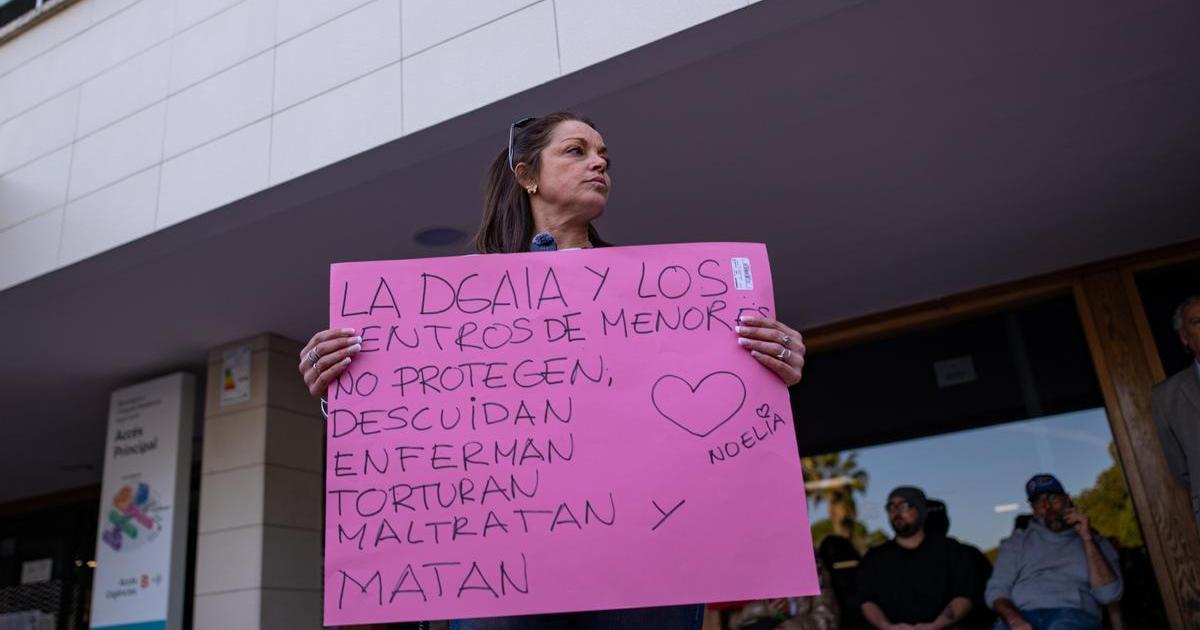 LA DGAIA Y LOS
CENTROS DE MENORES
NO PROTEGEN;
DESCUIDAN
ENFERMAN
TORTURAN
MALTRATAN Y
MATAN
NOELIA
Accés
Principal
Accés
Urgències